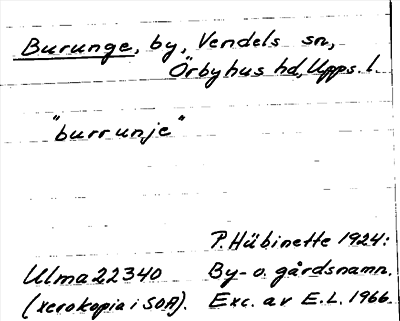 Burunge, by, Vendels sn,
Örbyhus hd, Upps. l.
"burrunje"
P. Hübinette 1924:
Ulma 22340 By- o. gårdsnamn.
(xerokopia i SOA). Exc. av E.L. 1966.